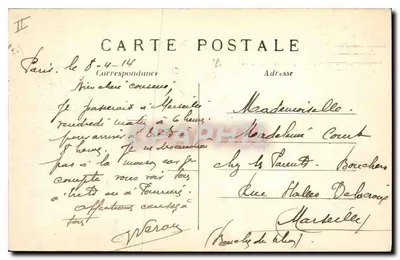 II
CARTE POSTALE
Paris, le 8-4-14
Correspondance
Adresse
Bien chère cousine,
Je passerai à Marseille
vendredi matin à 6 heures
pour
8 heures. Je ne descendrai
pas à la maison, car je
compte vous voir tous
à ou à
Affectueux à
tous
Mademoiselle
Madeleine
chez ses Parents Bouchers
Rue Halles Delacroix
Marseille
(Bouches du Rhône)